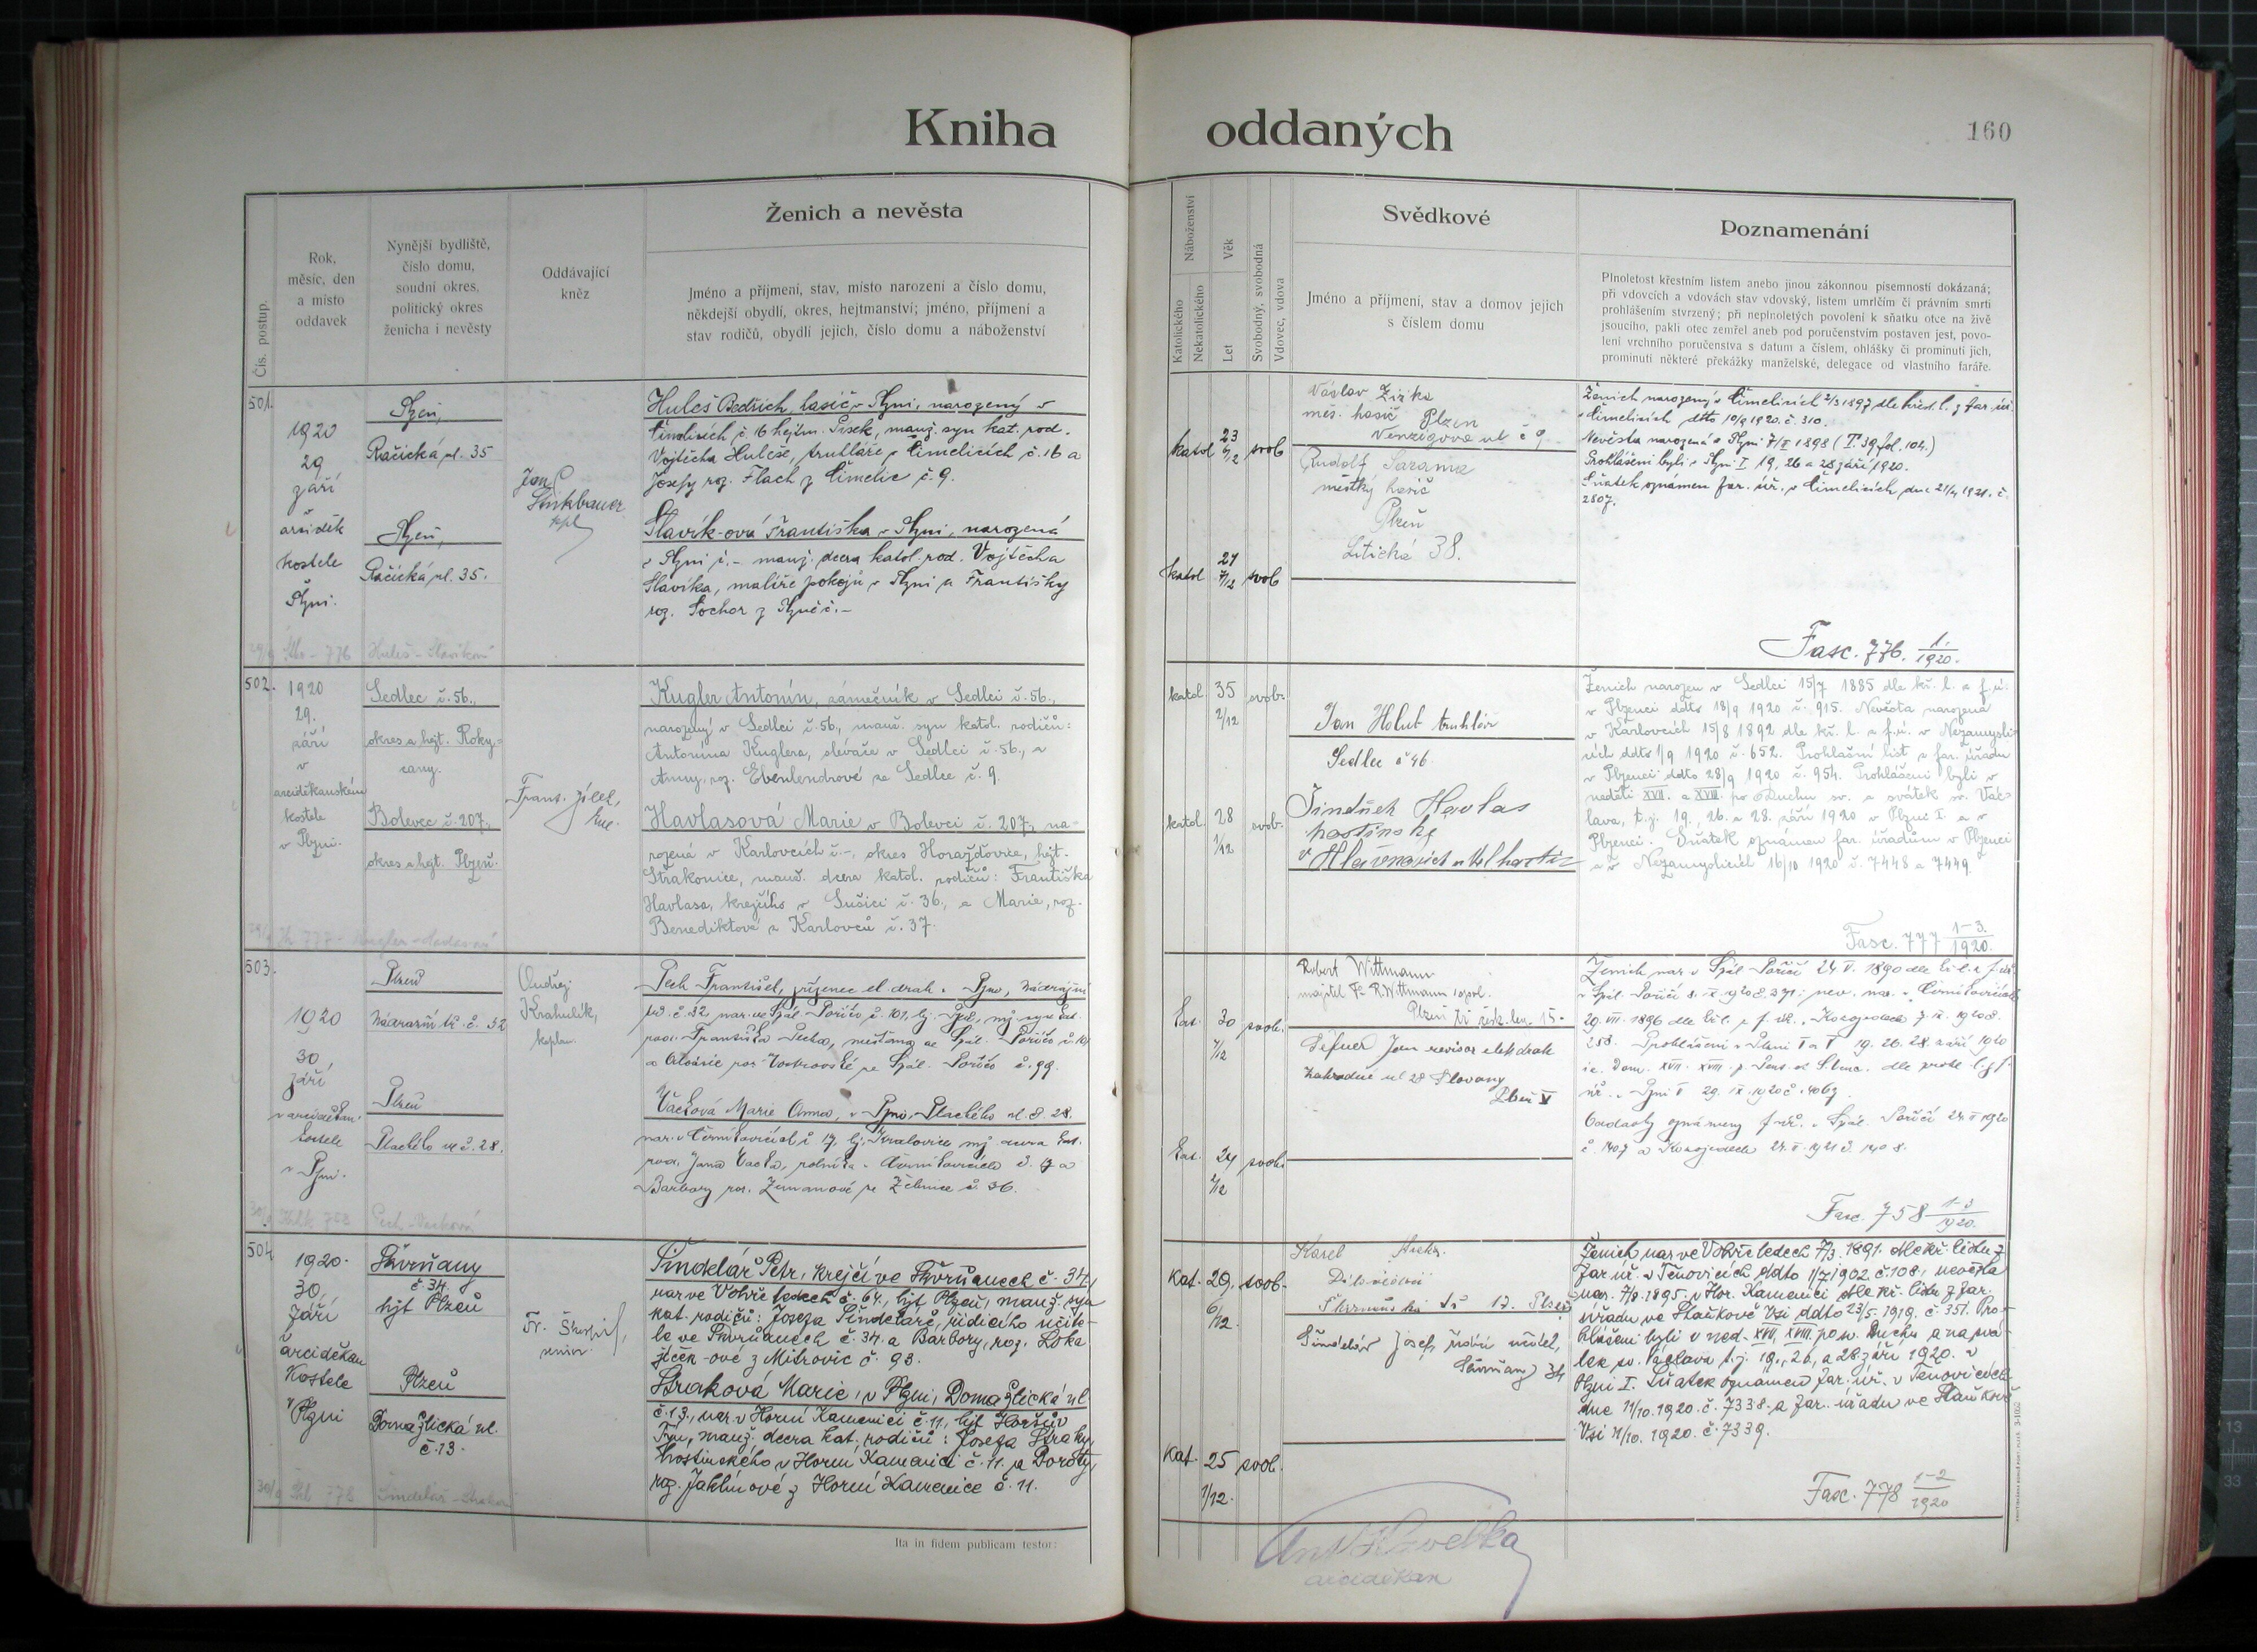 Kniha oddaných
160
Čís. postup.
Rok,
měsíc, den
a místo
oddavek
Nynější bydliště,
číslo domu,
soudní okres,
politický okres
ženicha i nevěsty
Oddávající
kněz
Ženich a nevěsta
Jméno a příjmení, stav, místo narození a číslo domu,
někdejší obydlí, okres, hejtmanství; jméno, příjmení a
stav rodičů, obydlí jejich, číslo domu a náboženství
Náboženství
Katolického
Nekatolického
Věk
Let
Svobodný, svobodná
Vdovec, vdova
Svědkové
Jméno a příjmení, stav a domov jejich
s číslem domu
Poznamenání
Plnoletost křestním listem anebo jinou zákonnou písemností dokázaná;
při vdovcích a vdovách stav vdovský, listem umrlčím či právním smrti
prohlášením stvrzený; při neplnoletých povolení k sňatku otce na živě
jsoucího, pakli otec zemřel aneb pod poručenstvím postaven jest, povo-
lení vrchního poručenstva s datum a číslem, ohlášky či prominutí jich,
prominutí některé překážky manželské, delegace od vlastního faráře.
501.
1920
29
září
v
arciděk
kostele
Plzni.
Plzeň,
Račická ul. 35
Plzeň,
Račická ul. 35.
Jan
kpl
Huleš Bedřich, hasič v Plzni, narozený v
Čimelicích č. 16 hejtm. Písek, manž. syn kat. rod.
Vojtěcha Huleše, truhláře v Čimelicích č. 16 a
Josefy roz. Flach z Čimelic č. 9.
Slavík-ová Františka v Plzni, narozená
v Plzni č. – manž. dcera katol. rod. Vojtěcha
Slavíka, malíře pokojů v Plzni a Františky
roz. Sochor z Plzně č. –
776 Huleš - Slavíková
katol 23 6/12 svob
katol 21 7/12 svob
Václav Žižka
měs. hasič
Plzen
Venzigova ul č 9
Rudolf Sarama
městký hasič
Plzeň
Litická 38.
Ženich narozený v Čimelicích 2/3 1897 dle křest. l. z far. úř.
v Čimelicích ddto 10/9 1920. č. 310.
Nevěsta narozená v Plzni 7/II 1898 (T. 39 fol. 104.)
Prohlášeni byli v Plzni I. 19, 26 a 28 září 1920.
Sňatek oznámen far. úř. v Čimelicích dne 21/4 1921. č.
2807.
Fasc. 776. 1./1920.
502.
1920
29.
září
v
arciděkanském
kostele
v Plzni.
Sedlec č. 56.,
okres a hejt. Roky-
cany.
Bolevec č. 207.,
okres a hejt. Plzeň.
Frant.
Kugler Antonín, zámečník v Sedlci č. 56.,
narozený v Sedlci č. 56, manž. syn katol. rodičů:
Antonína Kuglera, slévače v Sedlci č. 56., a
Anny, roz. Ebenlendrové ze Sedlce č. 9.
Havlasová Marie v Bolevci č. 207., na-
rozená v Karlovcích č. –, okres Horažďovice, hejt.
Strakonice, manž. dcera katol. rodičů: Františka
Havlasa, krejčího v Sušici č. 36., a Marie, roz.
Benediktové z Karlovců č. 37.
777 - Kugler - Havlasová
katol. 35 2/12 svob.
katol. 28 1/12 svob.
Jan Holub truhlář
Sedlec č 46
Jindřich Havlas
hostinský
v
Ženich narozen v Sedlci 15/7 1885 dle kř. l. z f. ú.
v Plzenci ddto 18/9 1920 č. 915. Nevěsta narozená
v Karlovcích 15/8 1892 dle kř. l. z f. ú. v Nezamysli-
cích ddto 1/9 1920 č. 652. Prohlašní list z far. úřadu
v Plzenci ddto 28/9 1920 č. 954. Prohlášeni byli v
neděli XVII. a XVIII. po Duchu sv. a svátek sv. Vác-
lava, t. j. 19., 26. a 28. září 1920 v Plzni I. a v
Plzenci. Sňatek oznámen far. úřadům v Plzenci
a v Nezamyslicích 16/10 1920 č. 7448 a 7449.
Fasc. 777 1-3./1920.
503.
1920
30
září
v arciděkan.
kostele
v Plzni.
Plzeň
Nádražní tř. č. 32
Plzeň
Plachého ul. č. 28.
Ondřej
Krahulík,
kaplan.
Pech František, zřízenec el. drah v Plzni, Nádražní
tř. č. 32, nar. ve Spál. Poříčí č. 101, manž. syn kat.
rod. Františka Pecha, měšťana ve Spál. Poříčí č. 101
a Aloisie roz. ze Spál. Poříčí č. 99.
Vacková Marie Anna, v Plzni, Plachého ul. č. 28.
nar. v č. 17, hj. Kralovice, mž. dcera kat.
rod. Jana Vacka, rolníka v č. 17 a
Barbory roz. Zemanové ze Žebnice č. 36.
758 Pech - Vacková
kat. 30 4/12 svob.
kat. 24 2/12 svob.
Robert Wittmann
majitel Fa R. Wittmann
Plzeň 15.
Jan revisor elek drah
Zahradní ul 28 Slovany
Plzeň V
Ženich nar. v Spál. Poříčí 24. V. 1890 dle kř. l. z f. úř.
v Spál. Poříčí 8. IX. 1920 č. 371; nev. nar. v
29. VII. 1896 dle kř. l. z f. úř. v Kozojedech 7. IX. 1920 č.
288. Prohlášeni v Plzni I a V 19. 26. 28. září 1920
Oddavky oznámeny f. úř. v Spál. Poříčí 24. V 1920
č. 1407 a Kozojedech 24. V. 1921 č. 1408.
Fasc. 758 1-3/1920.
504
1920.
30.
září
v
arciděkan
kostele
v Plzni
Skvrňany
č. 34
hjt Plzeň
Plzeň
Domažlická ul.
č. 13.
Fr.
senior.
Šindelář Petr, krejčí ve Skvrňanech č. 34,
nar ve Vohřeledech č. 64., hjt Plzeň, manž. syn
kat. rodičů: Josefa Šindeláře, řídicího učite-
le ve Skvrňanech č. 34. a Barbory, roz. Loka-
jíček-ové z Mitrovic č. 93.
Straková Marie, v Plzni, Domažlická ul
č. 13., nar. v Horní Kamenici č. 11, hjt Horšův
Týn, manž. dcera kat. rodičů: Josefa Straky,
hostinského v Horní Kamenici č. 11. a Doroty,
roz. Jahlínové z Horní Kamenice č. 11.
30/9 778 Šindelář - Straková
Kat. 29, 6/12. svob.
Kat. 25 1/12. svob.
Karel
12. Plzeň
Šindelář Josef, řídící učitel,
Skvrňany 34
Ženich nar ve Vohřeledech 7/3. 1891. dle kř. listu z
far úř. v Těnovicích, ddto 1/7. 1902. č. 108., nevěsta
nar. 7/8. 1895. v Hor. Kamenici dle kř. listu z far.
úřadu ve Staňkově Vsi ddto 23/5. 1919. č. 351. Pro-
hlášeni byli v ned. XVII, XVIII. po sv. Duchu a na svá-
tek sv. Václava t. j. 19., 26, a 28. září 1920. v
Plzni I. Sňatek oznámen far. úř. v Těnovicích
dne 11/10. 1920. č. 7338. a far. úřadu ve Staňkově
Vsi 11/10. 1920. č. 7339.
Fasc. 778 1-2/1920
Ita in fidem publicam testor:
Ant. Havelka
arciděkan